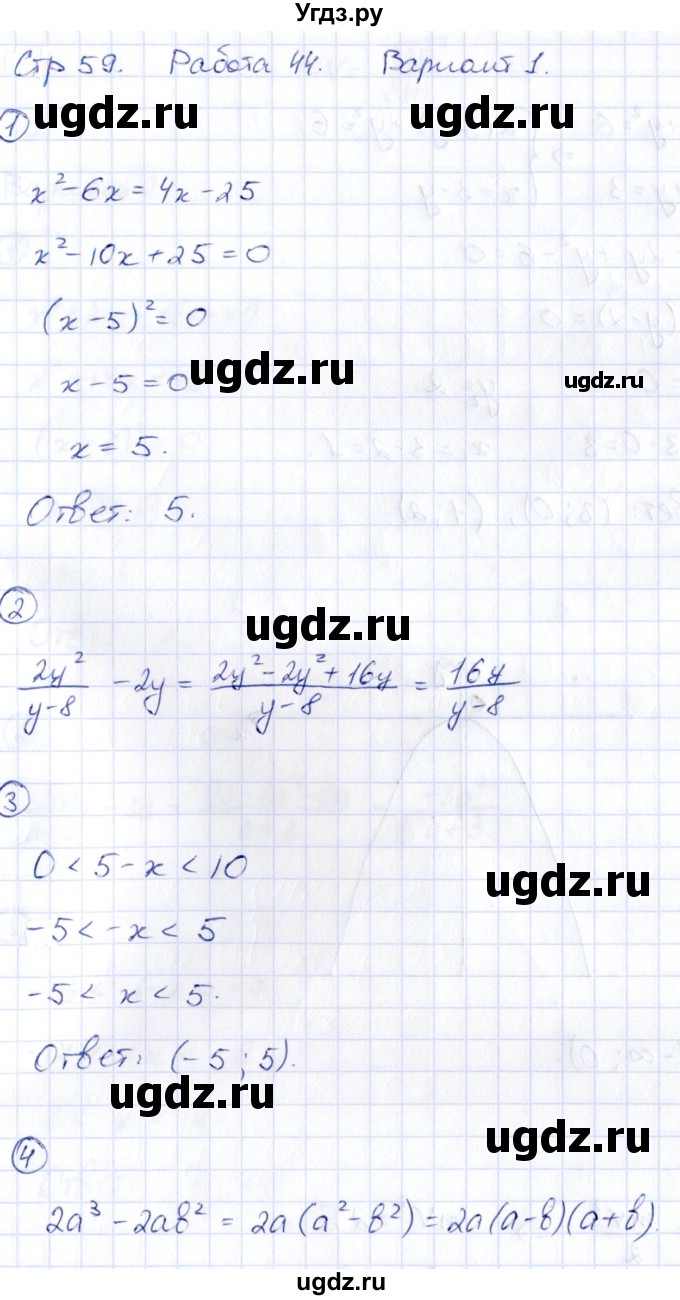 Угдз.ру
Стр 59. Работа 44. Вариант 1.
ugdz.ru ugdz.ru
1
x² - 6x = 4x - 25
x² - 10x + 25 = 0
(x - 5)² = 0
ugdz.ru ugdz.ru
x - 5 = 0
x = 5.
Ответ: 5.
2
ugdz.ru
2y²/(y-8) - 2y = (2y² - 2y² + 16y)/(y-8) = 16y/(y-8)
3
0 < 5 - x < 10
ugdz.ru
-5 < -x < 5
-5 < x < 5.
Ответ: (-5; 5).
ugdz.ru
4
ugdz.ru
2a³ - 2ab² = 2a(a² - b²) = 2a(a-b)(a+b).
ugdz.ru